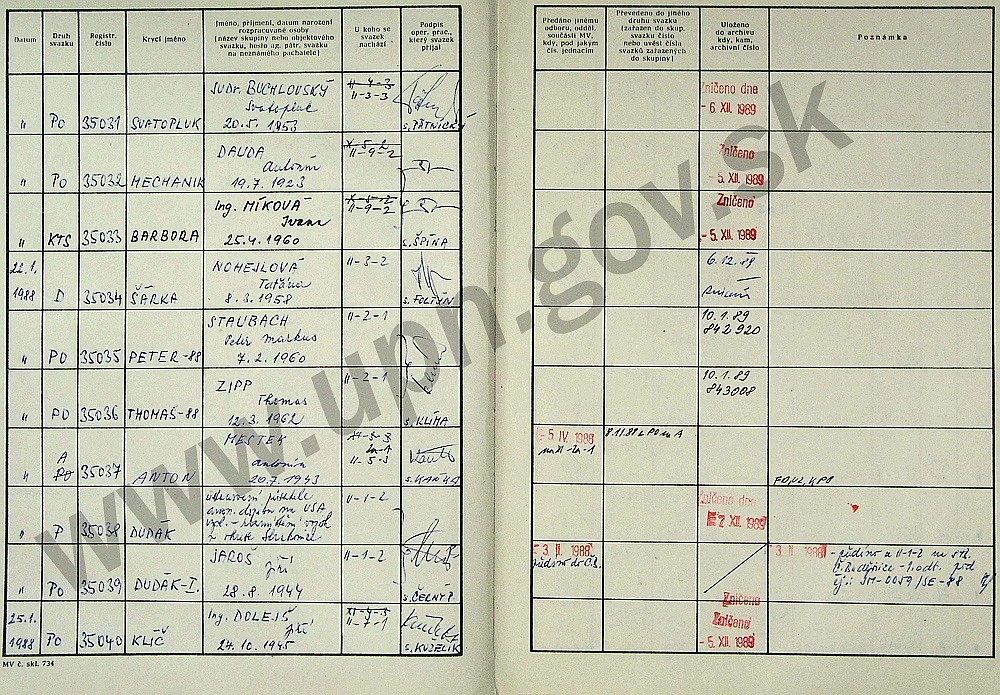 Datum
Druh svazku
Registr. číslo
Krycí jméno
Jméno, příjmení, datum narození
rozpracované osoby
(název skupiny nebo objektového
svazku, heslo ag. pátr. svazku
na neznámého pachatele)
U koho se
svazek
nachází
Podpis
oper. prac.,
který svazek
přijal
Předáno jinému
odboru, odděl.
součásti MV,
kdy, pod jakým
čís. jednacím
Převedeno do jiného
druhu svazku
(zařazen do skup.
svazku číslo
nebo uvést čísla
svazků zařazených
do skupiny)
Uloženo
do archivu
kdy, kam,
archivní číslo
Poznámka
" PO 35031 SVATOPLUK
JUDr. BUCHLOVSKÝ
Svatopluk
20.5. 1953
II-4-3
II-3-3
s. PÁTNICKÝ
Zničeno dne
- 6. XII. 1989
" PO 35032 MECHANIK
DAUDA
Antonín
19.7. 1923
X-5-2
II-9-2
Zničeno
- 5. XII. 1989
" KTS 35033 BARBORA
Ing. MÍKOVÁ
Ivana
25.4. 1960
II-9-2
s. ŠPÍNA
Zničeno
- 5. XII. 1989
22.1.
1988 D 35034 ŠÁRKA
NOHEJLOVÁ
Taťána
8.3. 1958
II-3-2
s. FOLTÝN
6.12.89
" PO 35035 PETER-88
STAUBACH
Peter Markus
7.2. 1960
II-2-1
10.1.89
842920
" PO 35036 THOMAS-88
ZIPP
Thomas
12.3. 1962
II-2-1
s. KLÍMA
10.1.89
843008
A
" PO 35037 ANTON
MESTEK
Antonín
20.7. 1943
II-5-3
s. KAŇKA
- 5. IV. 1988
8.11.88 z PO na A
" P 35038 DUDÁK
ustanovení pisatele
anon. dopisu na USA
II-1-2
Zničeno dne
7 XII. 1989
" PO 35039 DUDAK-I.
JAROŠ
Jiří
28.8. 1944
II-1-2
s. ČERNÝ P.
- 3. II. 1988
3. II. 1988
25.1.
1988 PO 35040 KLÍČ
Ing. DOLEJŠ
Jiří
24.10. 1945
XI-4-3
II-7-1
s. KUŽELÍK
Zničeno
Zničeno
- 5. XII. 1989
MV č. skl. 734
www.upn.gov.sk